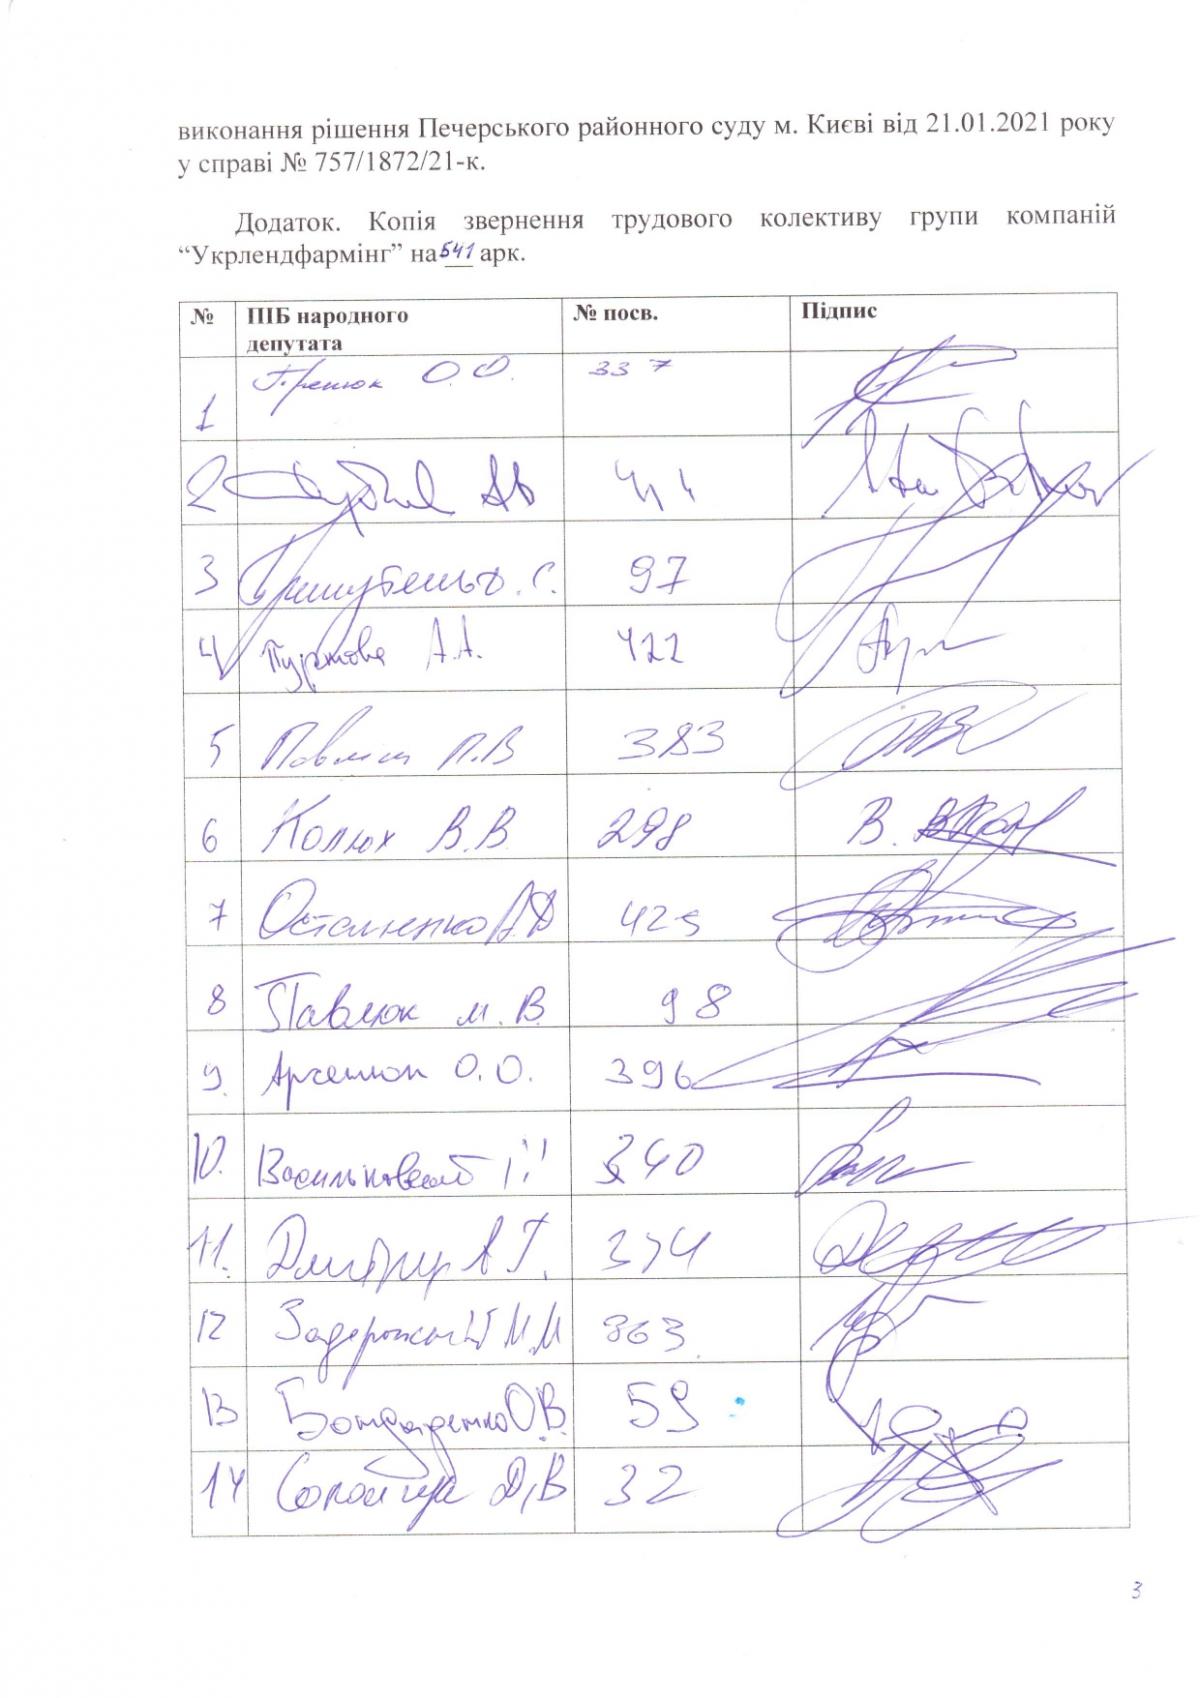 виконання рішення Печерського районного суду м. Києві від 21.01.2021 року
у справі № 757/1872/21-к.
Додаток. Копія звернення трудового колективу групи компаній
“Укрлендфармінг” на 541 арк.
№ ПІБ народного депутата № посв. Підпис
1 О.О. 337
2 АВ
3 97
4 А.А. 422
5 П.В 383
6 Колюх В.В. 298
7 Остапенко А.Д
8 Павлюк М.В. 98
9. Арсенюк О.О. 396
10. Васильковський І.І 340
11. Дмитрук А Г.
12 Задорожній М.М 363
13 Бондаренко О.В. 59
14 Д,В 32
3